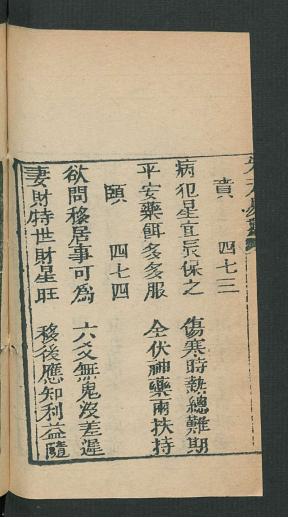 賁　四七三
病犯星宜辰保之　傷寒時熱總難期
平安藥餌多多服　全伏神藥兩扶持
頤　四七四
欲問移居事可為　六爻無鬼沒差遲
妻財持世財星旺　移後應知利益隨